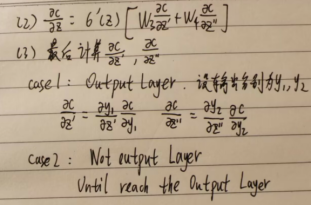 (2) ∂C/∂z = 6'(z) [W₃ ∂C/∂z' + W₄ ∂C/∂z'']
(3) 最后计算 ∂C/∂z', ∂C/∂z''
case 1: Output Layer. 设输出分别为y₁, y₂
∂C/∂z' = ∂y₁/∂z' ∂C/∂y₁ ∂C/∂z'' = ∂y₂/∂z'' ∂C/∂y₂
case 2: Not output Layer
Until reach the Output Layer